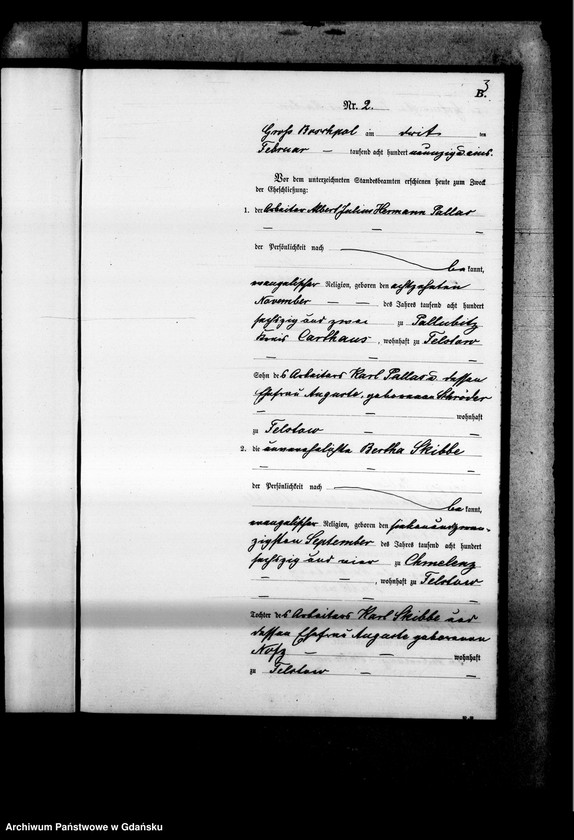 3
B.
Nr. 2.
Groß Boschpol am dritten
Februar — tausend acht hundert neunzig u. eins.
Vor dem unterzeichneten Standesbeamten erschienen heute zum Zweck
der Eheschließung:
1. der Arbeiter Albert Julius Hermann Pallas
— — —
der Persönlichkeit nach
be kannt,
evangelischer Religion, geboren den achtzehnten
November — — des Jahres tausend acht hundert
sechszig und zwei zu Pallubitz
Kreis Carthaus, wohnhaft zu Telstow
— — —
Sohn des Arbeiters Karl Pallas u. dessen
Ehefrau Auguste, geborenen Schröder
— — wohnhaft
zu Telstow — —
2. die unverehelichte Bertha Skibbe
— — —
der Persönlichkeit nach
be kannt,
evangelischer Religion, geboren den siebenundzwan-
zigsten September des Jahres tausend acht hundert
sechszig und vier zu Chmelenz
— —, wohnhaft zu Telstow
— — —
Tochter des Arbeiters Karl Skibbe und
dessen Ehefrau Auguste geborenen
— — wohnhaft
zu Telstow — —
Archiwum Państwowe w Gdańsku